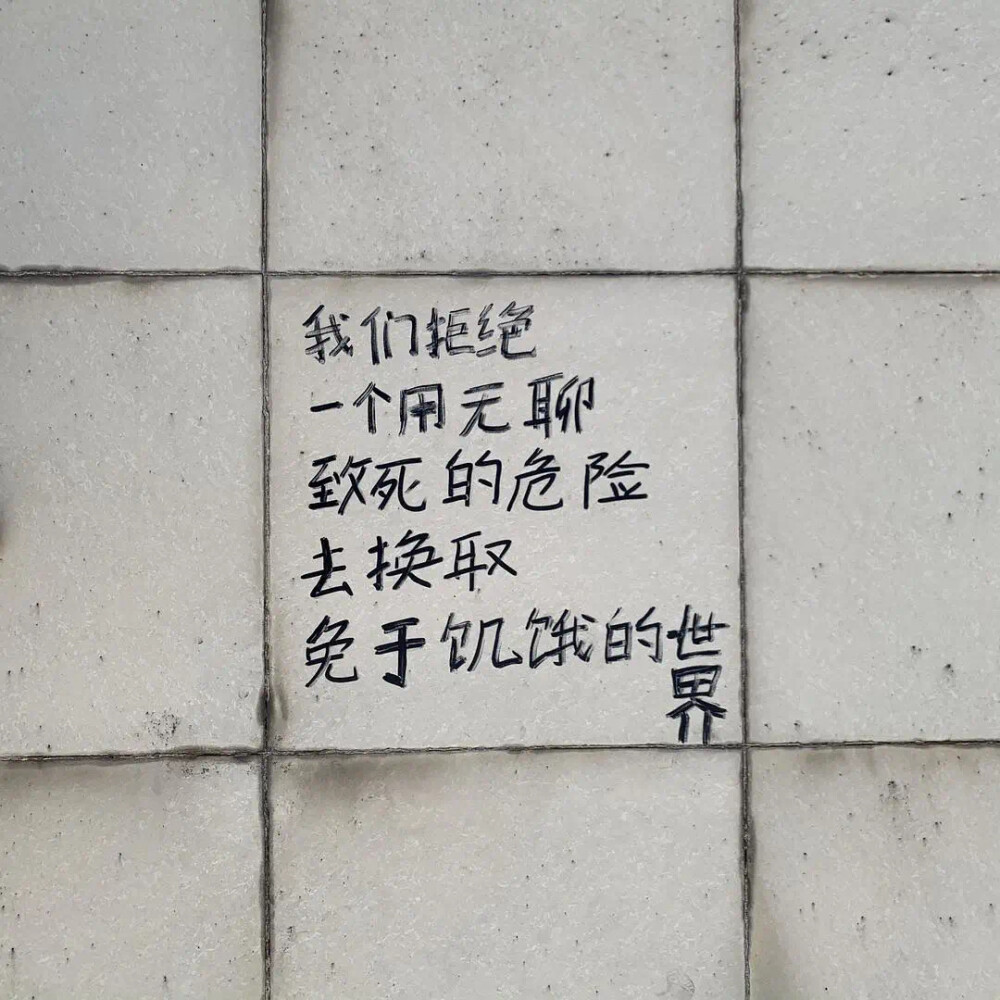 我们拒绝
一个用无聊
致死的危险
去换取
免于饥饿的世界